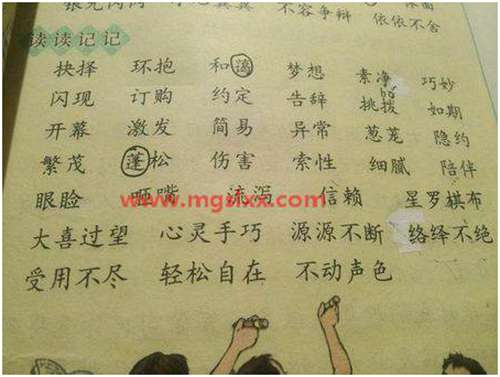 不容争辩
依依不舍
读读记记
抉择 环抱 和蔼 梦想 素净 巧妙
闪现 订购 约定 告辞 挑拨 如期
bō
开幕 激发 简易 异常 葱茏 隐约
繁茂 蓬松 伤害 索性 细腻 陪伴
眼睑 咂嘴 流泻 信赖 星罗棋布
www.mgslxx.com
大喜过望 心灵手巧 源源不断 络绎不绝
受用不尽 轻松自在 不动声色